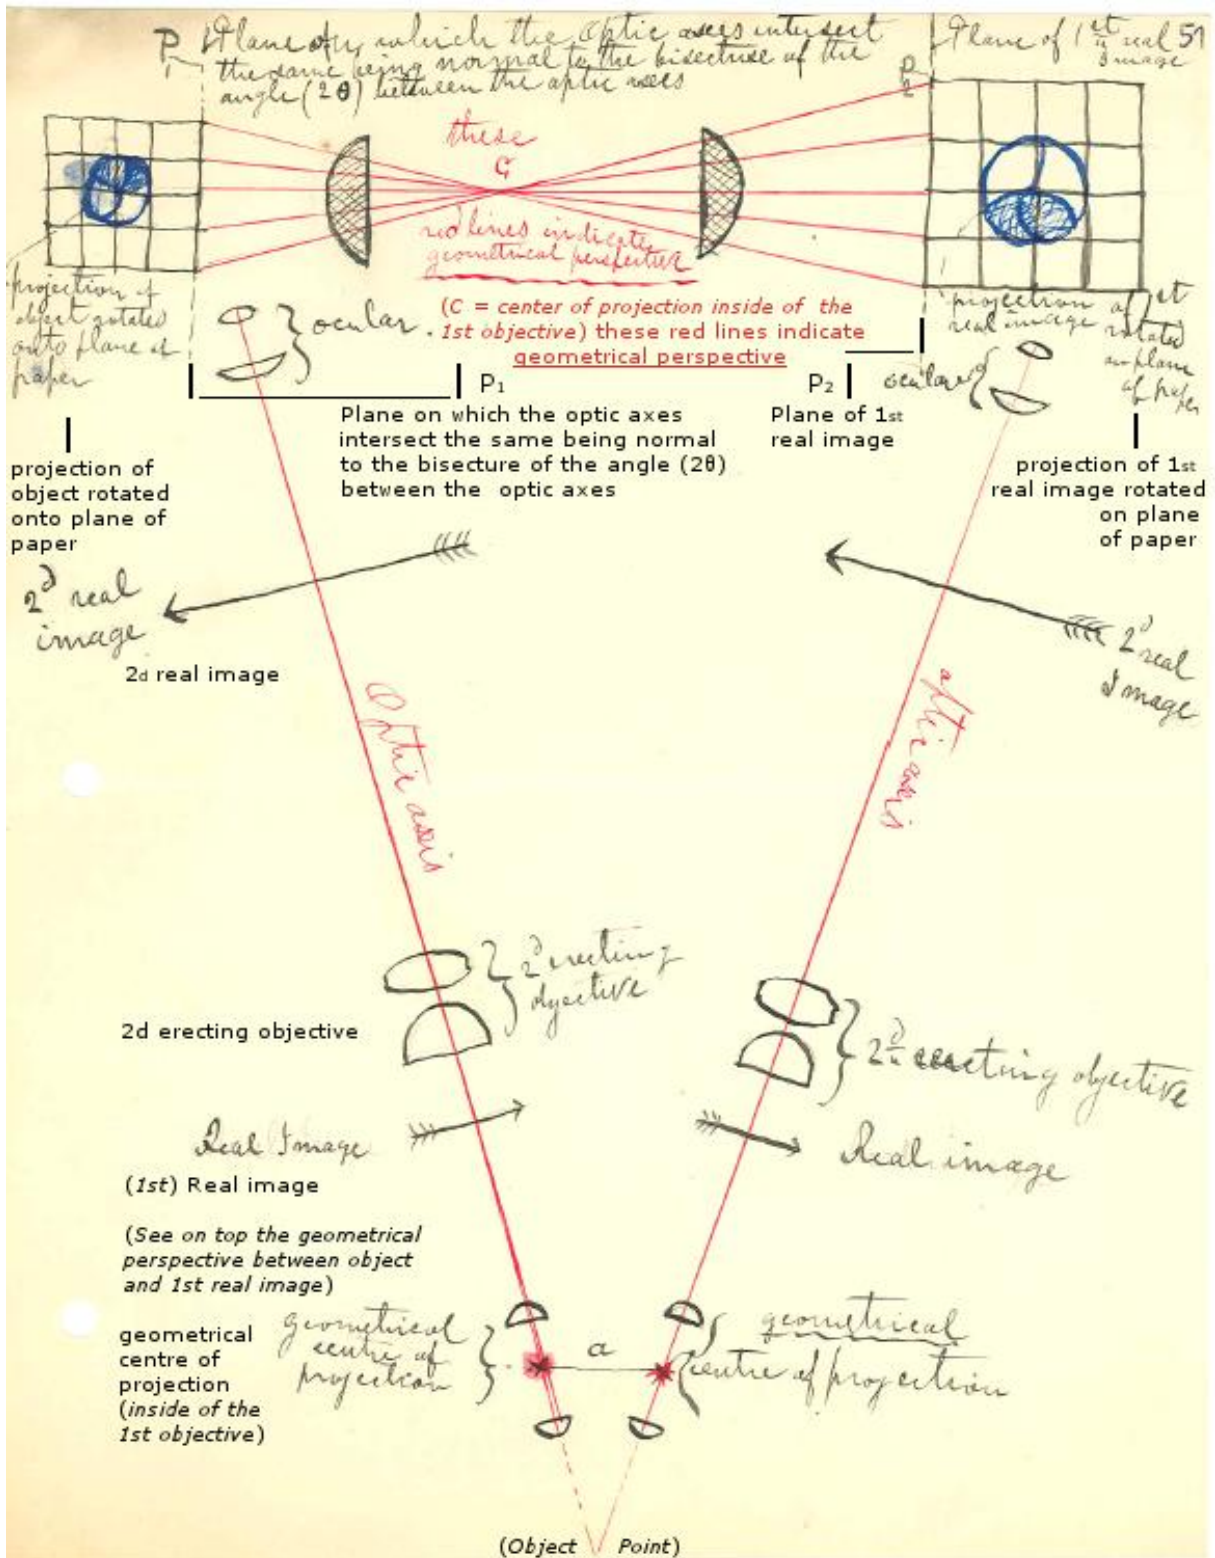 P1 Plane on which the Optic axes intersect
the same being normal to the bisecture of the
angle (2θ) between the optic axes
Plane of 1st real 51
Image
P2
these
C
red lines indicate
geometrical perspective
(C = center of projection inside of the
1st objective) these red lines indicate
geometrical perspective
projection of
object rotated
onto plane of
paper
ocular.
projection of 1st
real image rotated
on plane
of paper
ocular
P1
Plane on which the optic axes
intersect the same being normal
to the bisecture of the angle (2θ)
between the optic axes
P2
Plane of 1st
real image
projection of
object rotated
onto plane of
paper
projection of 1st
real image rotated
on plane
of paper
2d real
image
2d real image
2d real
Image
Optic axis
optic axis
2d erecting
objective
2d erecting objective
2d erecting objective
Real Image
(1st) Real image
Real image
(See on top the geometrical
perspective between object
and 1st real image)
geometrical
centre of
projection
geometrical
centre of
projection
(inside of the
1st objective)
a
geometrical
centre of projection
(Object Point)